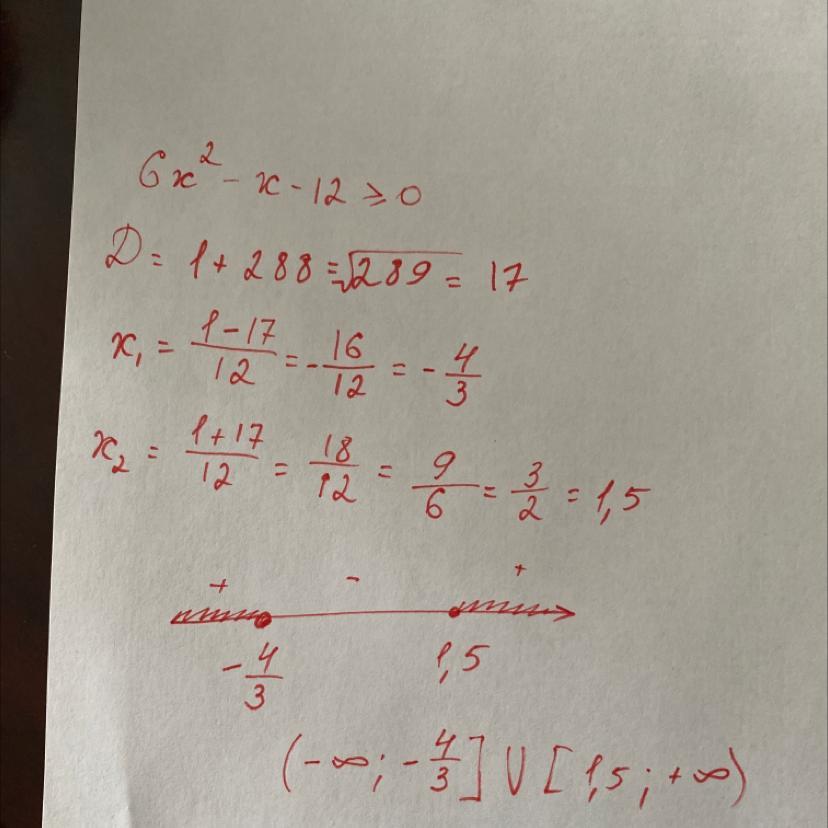 6x² - x - 12 ⩾ 0
D = 1 + 288 = √289 = 17
x₁ = (1-17)/12 = -16/12 = -4/3
x₂ = (1+17)/12 = 18/12 = 9/6 = 3/2 = 1,5
+ - +
-4/3 1,5
(-∞; -4/3] ∪ [1,5; +∞)